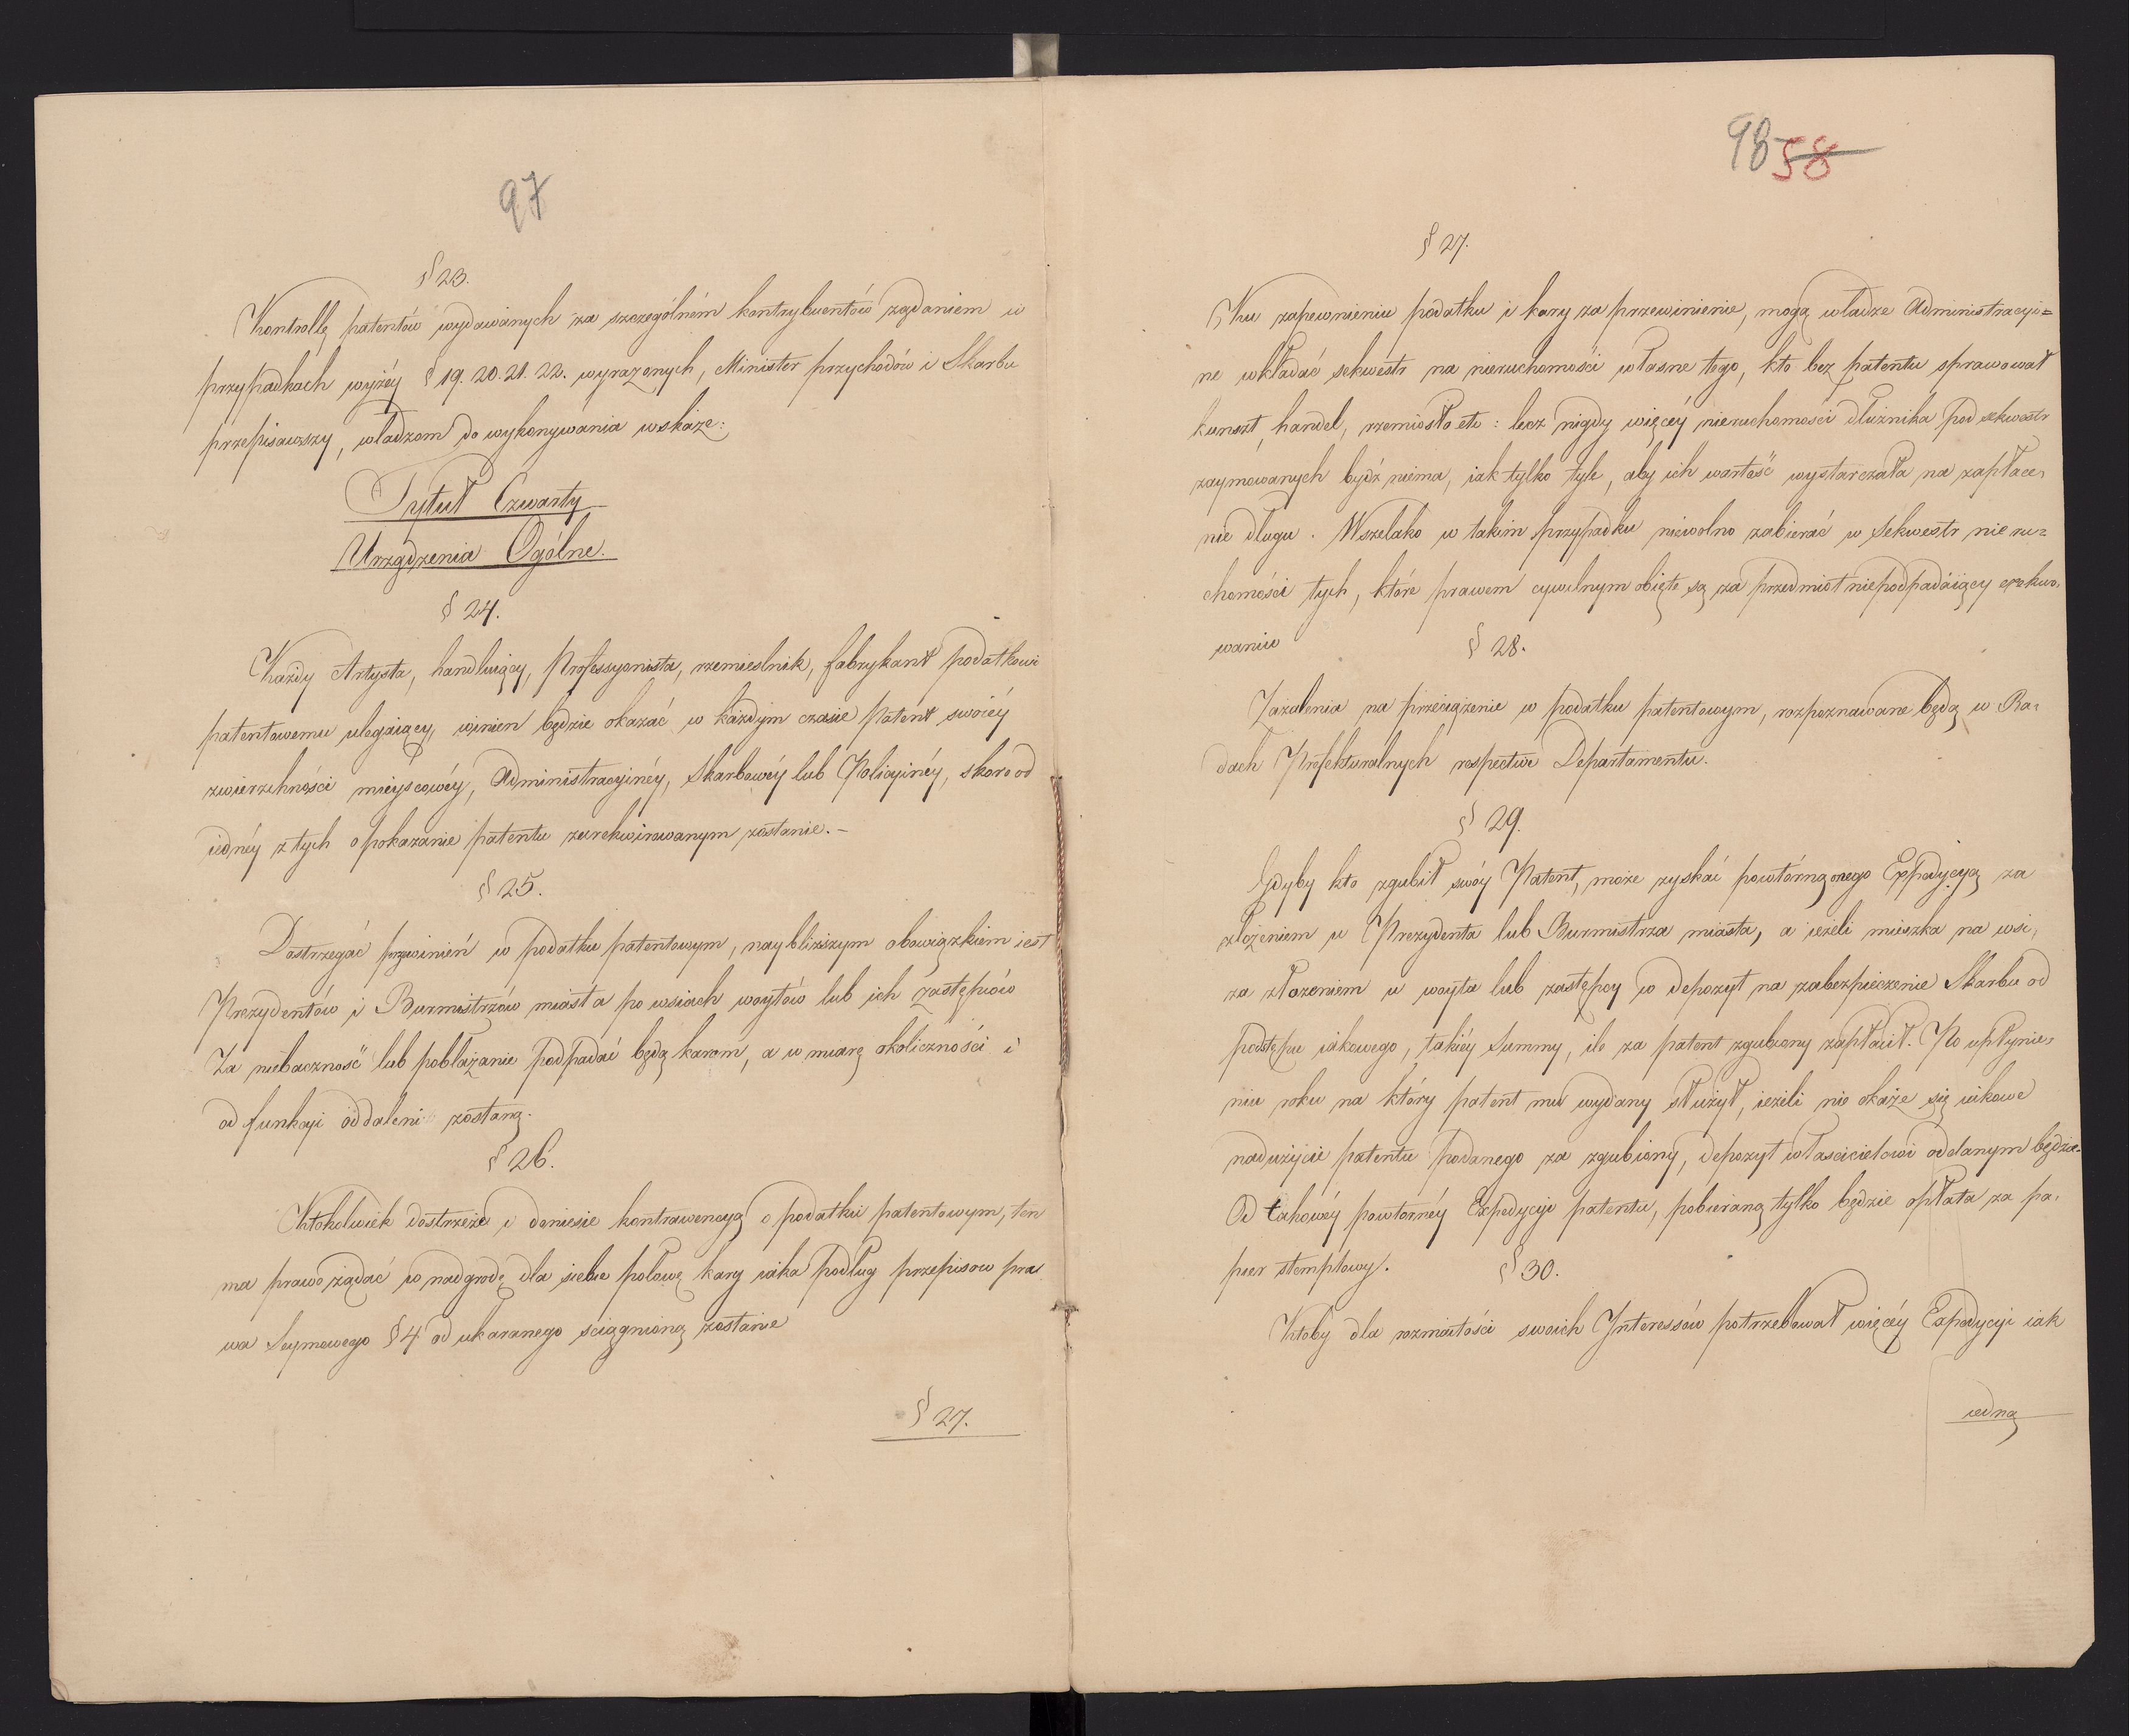 97
§ 23.
Kontrollę patentów wydawanych za szczególném kontrybuentów żądaniem w
przypadkach wyżéy § 19. 20. 21. 22. wyrażonych, Minister przychodów i Skarbu
przepisawszy, władzom do wykonywania wskaże:
Tytuł Czwarty
Urządzenia Ogólne.
§ 24.
Każdy Artysta, handluiący, Professyonista, rzemieslnik, fabrykant podatkowi
patentowemu ulegaiący, winien będzie okazać w każdym czasie Patent swoiéy
zwierzchności mieyscowéy, Administracyinéy, Skarbowéy lub Policyinéy, skoro od
iednéy z tych o pokazanie patentu zarekwirowanym zostanie. –
§ 25.
Dostrzegać przewinień w podatku patentowym, naybliższym obowiązkiem iest
Prezydentów i Burmistrzów miast a po wsiach woytów lub ich zastępców
Za niebaczność lub pobłażanie podpadać będą karom, a w miarę okoliczności i
od funkcyi oddaleni zostaną.
§ 26.
Ktokolwiek dostrzeże i doniesie kontrawencyą o podatku patentowym, ten
ma prawo żądać w nadgrodę dla siebie połowę kary iaka podług przepisow pra
wa Seymowego § 4 od ukaranego sciągnioną zostanie
§ 27.
98 58
§ 27.
Ku zapewnieniu podatku i kary za przewinienie, mogą władze Administracyi=
ne wkładać sekwestr na nieruchomości własne tego, kto bez patentu sprawował
kunszt, handel, rzemiosło etc: lecz nigdy więcéy nieruchomości dłużnika pod sekwestr
zaymowanych bydź niema, iak tylko tyle, aby ich wartość wystarczała na zapłace=
nie długu. Wszelako w takim przypadku niewolno zabierać w Sekwestr nieru=
chomości tych, które prawem cywilnym obięte są za przedmiot niepodpadaiący exekwo=
waniu
§ 28.
Zażalenia na przeciążenie w podatku patentowym, rozpoznawane będą w Ra=
dach Prefekturalnych respective Departamentu.
§ 29.
Gdyby kto zgubił swóy Patent, może zyskać powtórną onego Expedycyą za
złożeniem u Prezydenta lub Burmistrza miasta, a ieżeli mieszka na wsi,
za złożeniem u woyta lub zastępcy w depozyt na zabezpieczenie Skarbu od
podstępu iakowego, takiéy Summy, ile za patent zgubiony zapłacił. Po upłynie=
niu roku na który patent mu wydany służył, ieżeli nie okaże się iakowe
nadużycie patentu podanego za zgubiony, depozyt włascicielowi oddanym będzie.
Od takowéy powtornéy Expedycyi patentu, pobieraną tylko będzie opłata za pa=
pier stemplowy.
§ 30.
Ktoby dla rozmaitości swoich Interessów potrzebował więcéy Expedycyi iak
iedną